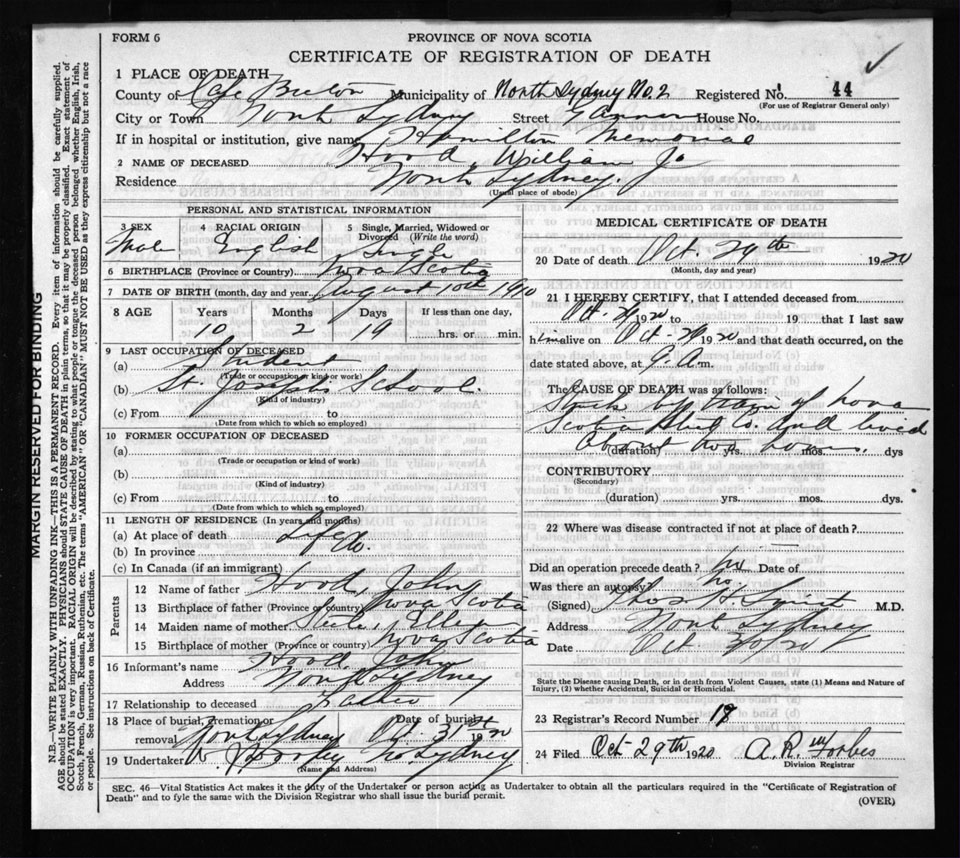 FORM 6
PROVINCE OF NOVA SCOTIA
CERTIFICATE OF REGISTRATION OF DEATH
1 PLACE OF DEATH
County of Cape Breton Municipality of North Sydney No. 2 Registered No. 44
(For use of Registrar General only)
City or Town North Sydney Street House No.
If in hospital or institution, give name Hamilton Memorial
2 NAME OF DECEASED Hood, William J
Residence North Sydney.
(Usual place of abode)
PERSONAL AND STATISTICAL INFORMATION
3 SEX 4 RACIAL ORIGIN 5 Single, Married, Widowed or Divorced (Write the word)
Male English Single
6 BIRTHPLACE (Province or Country) Nova Scotia
7 DATE OF BIRTH (month, day and year) August 10th 1910
8 AGE Years Months Days If less than one day,
10 2 19 hrs. or min.
9 LAST OCCUPATION OF DECEASED
(a) Student
(Trade or occupation or kind or work)
(b) St. Josephs School
(Kind of industry)
(c) From to
(Date from which to which so employed)
10 FORMER OCCUPATION OF DECEASED
(a)
(Trade or occupation or kind of work)
(b)
(Kind of industry)
(c) From to
(Date from which to which so employed)
11 LENGTH OF RESIDENCE (In years and months)
(a) At place of death Life
(b) In province do.
(c) In Canada (if an immigrant)
Parents
12 Name of father Hood, John
13 Birthplace of father (Province or country) Nova Scotia
14 Maiden name of mother Ellen
15 Birthplace of mother (Province or country) Nova Scotia
16 Informant's name Hood, John
Address North Sydney
17 Relationship to deceased Father
18 Place of burial, cremation or removal North Sydney Date of burial Oct 31st 1920
19 Undertaker No. Sydney
(Name and Address)
MEDICAL CERTIFICATE OF DEATH
20 Date of death Oct. 29th 1920
(Month, day and year)
21 I HEREBY CERTIFY, that I attended deceased from
Oct. 1920 to 19 that I last saw
him alive on Oct 29 1920 and that death occurred, on the
date stated above, at 9 A.m.
The CAUSE OF DEATH was as follows:
of Nova
Scotia Co. and lived
about two hours.
(duration) yrs. mos. dys
CONTRIBUTORY
(Secondary)
(duration) yrs. mos. dys.
22 Where was disease contracted if not at place of death?
Did an operation precede death? no Date of
Was there an autopsy no.
(Signed) Thos. H. M.D.
Address North Sydney
Date Oct
State the Disease causing Death, or in death from Violent Causes, state (1) Means and Nature of
Injury, (2) whether Accidental, Suicidal or Homicidal.
23 Registrar's Record Number
24 Filed Oct 29th 1920 A. R. Forbes
Division Registrar
SEC. 46—Vital Statistics Act makes it the duty of the Undertaker or person acting as Undertaker to obtain all the particulars required in the "Certificate of Registration of
Death" and to fyle the same with the Division Registrar who shall issue the burial permit.
(OVER)
MARGIN RESERVED FOR BINDING
N.B.—WRITE PLAINLY WITH UNFADING INK—THIS IS A PERMANENT RECORD. Every item of information should be carefully supplied.
AGE should be stated EXACTLY. PHYSICIANS should STATE CAUSE OF DEATH in plain terms, so that it may be properly classified. Exact statement of
OCCUPATION is very important. RACIAL ORIGIN will be described by stating to what people or tongue the deceased person belonged whether English, Irish,
Scotch, French, German, Russian, Ruthenian, etc. The terms "AMERICAN" OR "CANADIAN" MUST NOT BE USED as they express citizenship but not a race
or people. See instructions on back of Certificate.